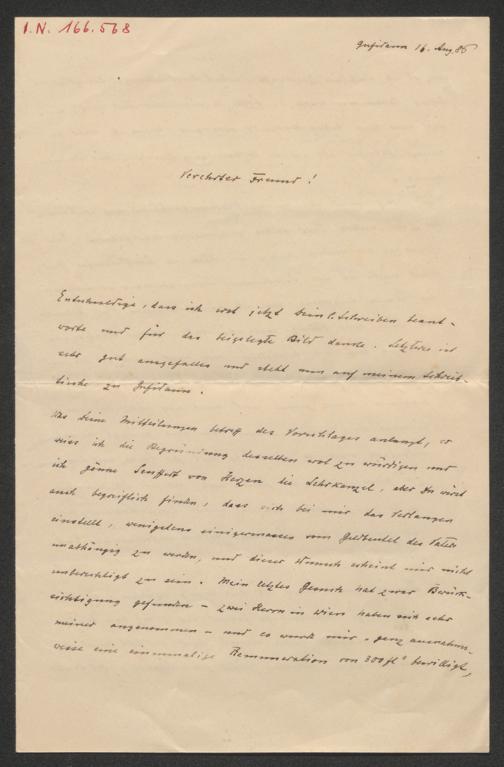 I.N. 166.568
Gufidaun 16. Aug 86
Verehrter Freund!
Entschuldige, dass ich erst jetzt dein l. Schreiben beant-
worte und für das beigelegte Bild danke. Letzteres ist
sehr gut ausgefallen und steht nun auf meinem Schreib-
tische zu Gufidaun.
Was deine Mitteilungen betreff des Vorschlages anlangt, so
weiss ich die Begründung desselben wol zu würdigen und
ich gönne Senffert von Herzen die Lehrkanzel, aber Du wirst
auch begreiflich finden, dass sich bei mir das Verlangen
einstellt, wenigstens einigermassen vom Geldbeutel des Vaters
unabhängig zu werden, und dieser Wunsch scheint mir nicht
unberechtigt zu sein. Mein letztes Gesuch hat zwar Berück-
sichtigung gefunden – zwei Herrn in Wien haben sich sehr
meiner angenommen – und es wurde mir „ganz ausnahms-
weise eine einmalige Remuneration von 300 fl" bewilligt,